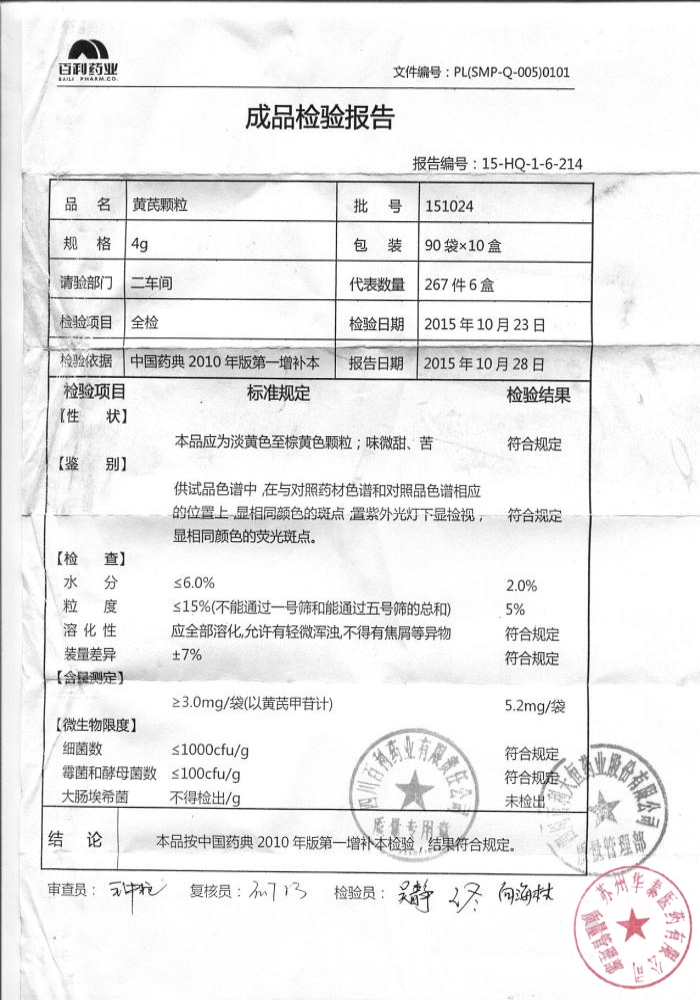 百利药业
BAILI PHARM.CO.
文件编号：PL(SMP-Q-005)0101
成品检验报告
报告编号：15-HQ-1-6-214
品 名 黄芪颗粒 批 号 151024
规 格 4g 包 装 90 袋×10 盒
请验部门 二车间 代表数量 267 件 6 盒
检验项目 全检 检验日期 2015 年 10 月 23 日
检验依据 中国药典 2010 年版第一增补本 报告日期 2015 年 10 月 28 日
检验项目 标准规定 检验结果
【性 状】
本品应为淡黄色至棕黄色颗粒；味微甜、苦 符合规定
【鉴 别】
供试品色谱中,在与对照药材色谱和对照品色谱相应
的位置上,显相同颜色的斑点,置紫外光灯下显检视， 符合规定
显相同颜色的荧光斑点。
【检 查】
水 分 ≤6.0% 2.0%
粒 度 ≤15%(不能通过一号筛和能通过五号筛的总和) 5%
溶 化 性 应全部溶化,允许有轻微浑浊,不得有焦屑等异物 符合规定
装量差异 ±7% 符合规定
【含量测定】
≥3.0mg/袋(以黄芪甲苷计) 5.2mg/袋
【微生物限度】
细菌数 ≤1000cfu/g 符合规定
霉菌和酵母菌数 ≤100cfu/g 符合规定
大肠埃希菌 不得检出/g 未检出
四川百利药业有限责任公司
质量专用章
大恒药业股份有限公司
质量管理部
结 论 本品按中国药典 2010 年版第一增补本检验，结果符合规定。
审查员： 复核员： 检验员： 吴静 向海林
苏州华泰医药有限公司
质量管理部